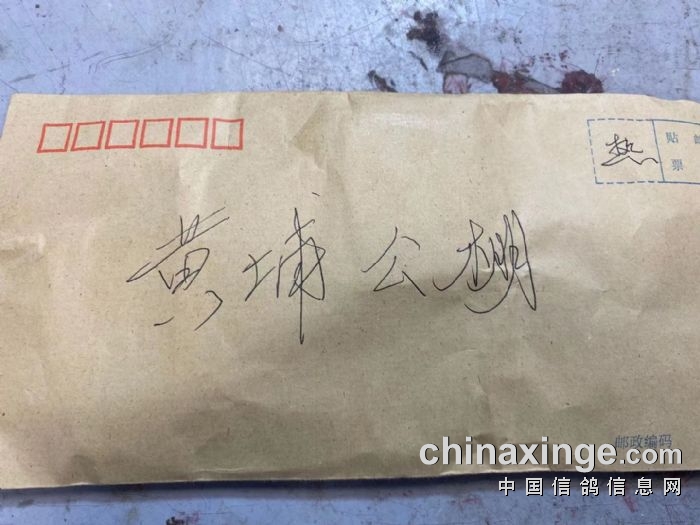 热
贴 邮
票
黄埔公棚
邮政编码
chinaxinge.com
中国信鸽信息网